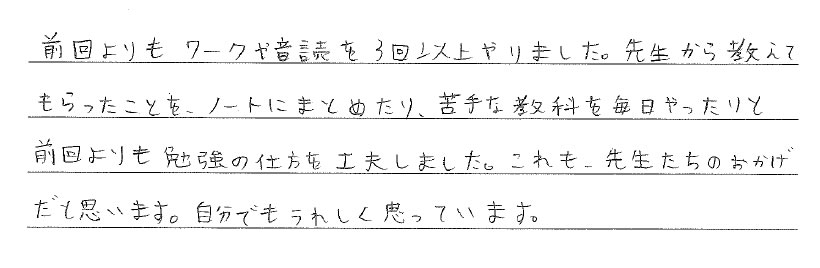 前回よりも ワークや音読を3回以上やりました。先生から教えて
もらったことを、ノートにまとめたり、苦手な教科を毎日やったりと
前回よりも勉強の仕方を工夫しました。これも、先生たちのおかげ
だと思います。自分でもうれしく思っています。